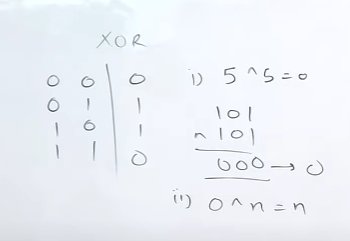 XOR
0 0 | 0
0 1 | 1
1 0 | 1
1 1 | 0
i) 5 ^ 5 = 0
101
^ 101
000 → 0
ii) 0 ^ n = n